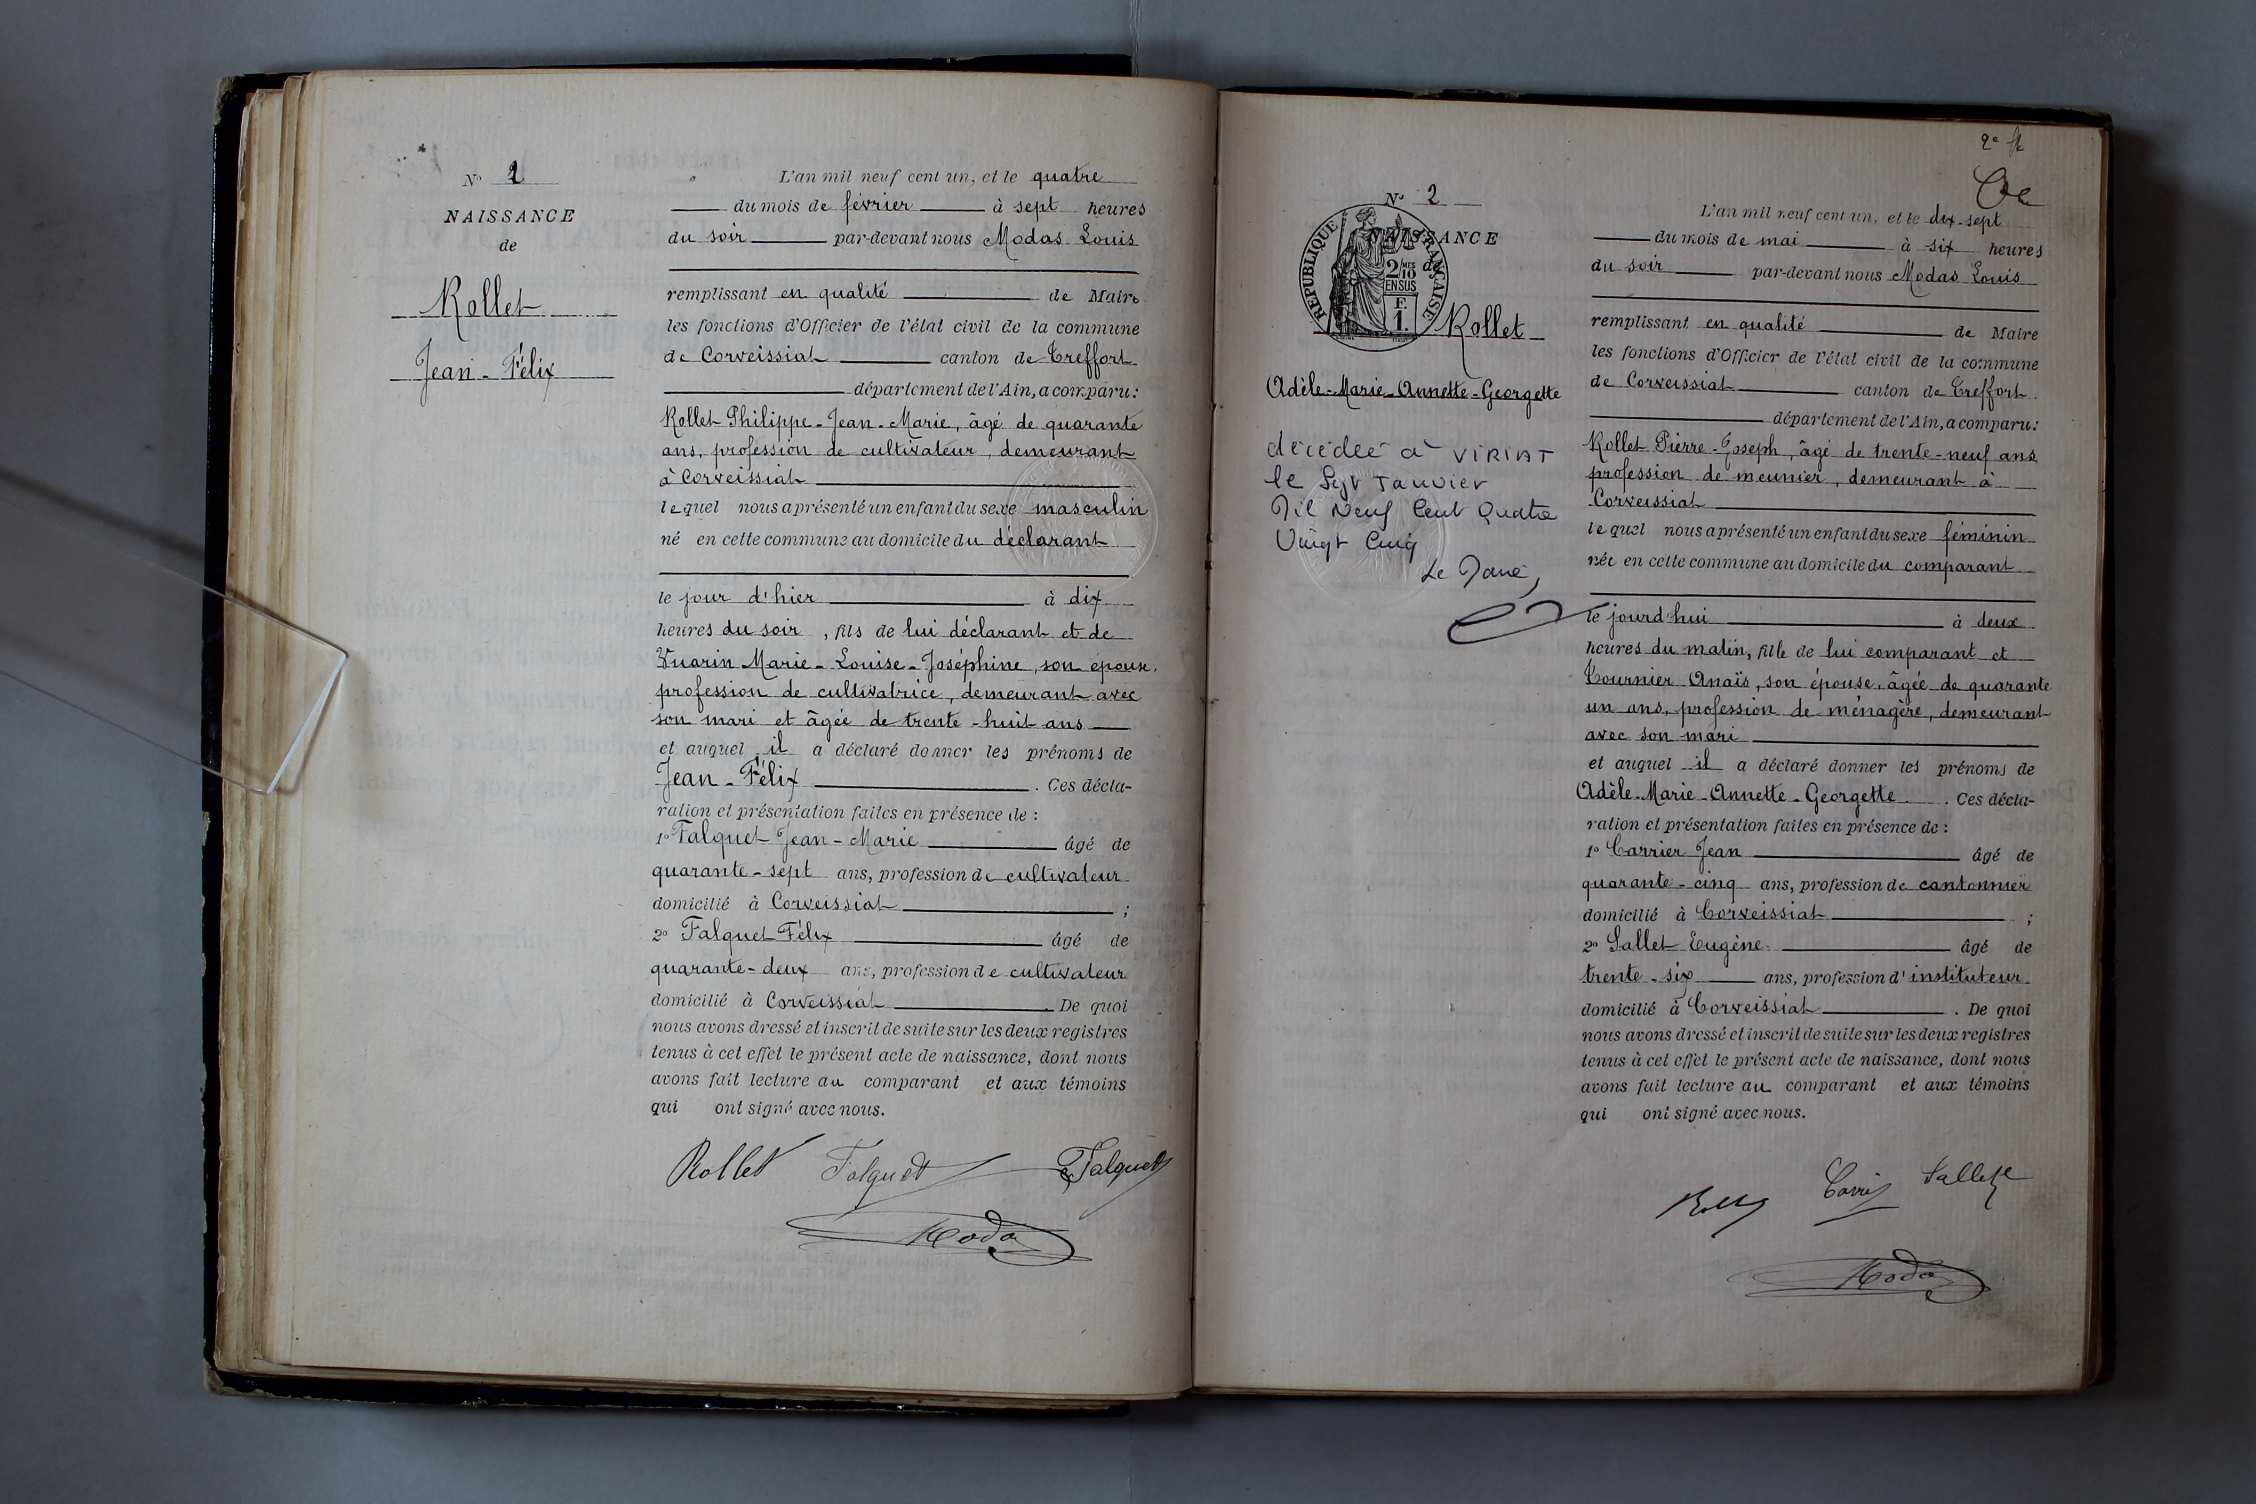 N° 1
NAISSANCE
de
Rollet
Jean-Félix
L'an mil neuf cent un, et le quatre
du mois de février à sept heures
du soir par-devant nous Modas Louis
remplissant en qualité de Maire
les fonctions d'Officier de l'état civil de la commune
de Corveissiat canton de Treffort
département de l'Ain, a comparu :
Rollet Philippe-Jean-Marie, âgé de quarante
ans, profession de cultivateur, demeurant
à Corveissiat
lequel nous a présenté un enfant du sexe masculin
né en cette commune au domicile du déclarant
le jour d'hier à dix
heures du soir, fils de lui déclarant et de
Vuarin Marie-Louise-Joséphine, son épouse,
profession de cultivatrice, demeurant avec
son mari et âgée de trente-huit ans
et auquel il a déclaré donner les prénoms de
Jean-Félix . Ces décla-
ration et présentation faites en présence de :
1° Falquet Jean-Marie âgé de
quarante-sept ans, profession de cultivateur
domicilié à Corveissiat ;
2° Falquet Félix âgé de
quarante-deux ans, profession de cultivateur
domicilié à Corveissiat . De quoi
nous avons dressé et inscrit de suite sur les deux registres
tenus à cet effet le présent acte de naissance, dont nous
avons fait lecture au comparant et aux témoins
qui ont signé avec nous.
Rollet Falquet Falquet
Modas
2e
N° 2
NAISSANCE
de
RÉPUBLIQUE FRANÇAISE
2/10 MES
EN SUS
F.
1.
Rollet
Adèle-Marie-Annette-Georgette
décédée à VIRIAT
le Sept Janvier
Mil Neuf Cent Quatre
Vingt Cinq
Le Maire,
L'an mil neuf cent un, et le dix-sept
du mois de mai à six heures
du soir par-devant nous Modas Louis
remplissant en qualité de Maire
les fonctions d'Officier de l'état civil de la commune
de Corveissiat canton de Treffort.
département de l'Ain, a comparu :
Rollet Pierre-Joseph, âgé de trente-neuf ans
profession de meunier, demeurant à
Corveissiat
lequel nous a présenté un enfant du sexe féminin
née en cette commune au domicile du comparant
le jourd'hui à deux
heures du matin, fille de lui comparant et
Tournier Anaïs, son épouse, âgée de quarante
un ans, profession de ménagère, demeurant
avec son mari
et auquel il a déclaré donner les prénoms de
Adèle-Marie-Annette-Georgette . Ces décla-
ration et présentation faites en présence de :
1° Carrier Jean âgé de
quarante-cinq ans, profession de cantonnier
domicilié à Corveissiat ;
2° Sallet Eugène âgé de
trente-six ans, profession d'instituteur
domicilié à Corveissiat . De quoi
nous avons dressé et inscrit de suite sur les deux registres
tenus à cet effet le présent acte de naissance, dont nous
avons fait lecture au comparant et aux témoins
qui ont signé avec nous.
Rollet Carrier Sallet
Modas